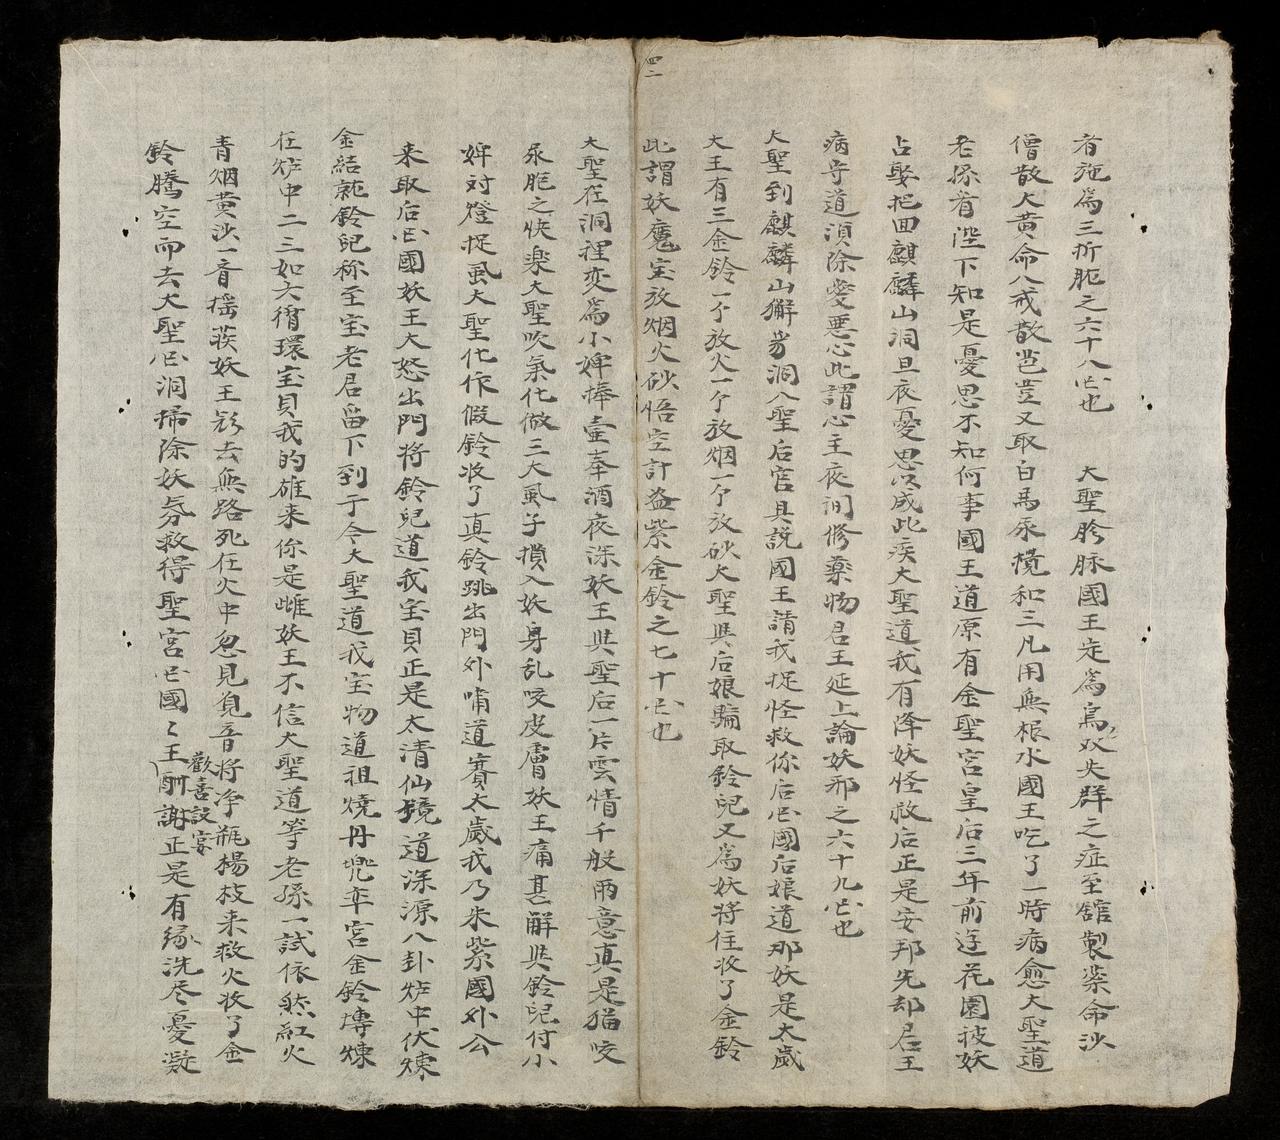 者施為三折肱之六十八回也 大聖胗脉國王定為烏双失群之症至舘製薬命沙
僧散大黄命八戒散芭豆又取白馬尿攪和三凡用無根水國王吃了一時病愈大聖道
老孫看陛下知是憂思不知何事國王道原有金聖宮皇后三年前逰花園被妖
占娶把回麒麟山洞旦夜憂思以成此疾大聖道我有降妖怪救后正是安邦先却君王
病守道湏除愛悪心此謂心主夜间修藥物君王延上論妖邪之六十九回也
大聖到麒麟山獬豸洞入聖后宮具說國王請我捉怪救你后回國后娘道那妖是太歲
大王有三金鈴一个放火一个放烟一个放砂大聖與后娘騙取鈴兒又為妖將住收了金鈴
此謂妖魔宝放烟火砂悟空計盗紫金鈴之七十回也
四二
大聖在洞裡変為小婢捧壷奉酒夜深妖王與聖后一片雲情千般雨意真是猫咬
尿胞之快楽大聖吹氣化做三大風子攢入妖身乱咬皮膚妖王痛甚解與鈴兒付小
婢对燈捉風大聖化作假鈴收了真鈴跳出門外嘯道賽太歲我乃朱紫國外公
来取后回國妖王大怒出門将鈴兒道我宝貝正是太清仙境道深源八卦炉中伏煉
金結就鈴兒称至宝老君留下到于今大聖道我宝物道祖燒丹兜率宮金鈴摶煉
在炉中二三如六循環宝貝我的雄来你是雌妖王不信大聖道等老孫一試依然紅火
青烟黄沙一音搖𧂐妖王欲去無路死在火中忽見覍音将净瓶楊枝来救火收了金
鈴騰空而去大聖回洞掃除妖氛救得聖宮回國〻王酧謝正是有緣洗尽憂凝
歡喜設宴